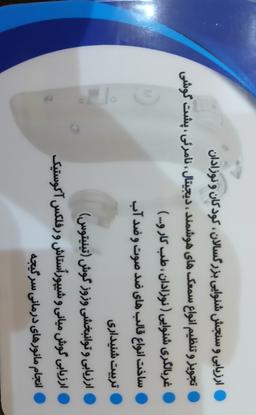 ارزیابی و سنجش شنوایی بزرگسالان، کودکان و نوزادان
تجویز و تنظیم انواع سمعک های هوشمند، دیجیتال، نامرئی، پشت گوشی
غربالگری شنوایی (نوزادان، طب کار و...)
ساخت انواع قالب های ضد صوت و ضد آب
تربیت شنیداری
ارزیابی و توانبخشی وزوز گوش (تینیتوس)
ارزیابی گوش میانی و شیپور استاش و رفلکس آکوستیک
انجام مانورهای درمانی سرگیجه